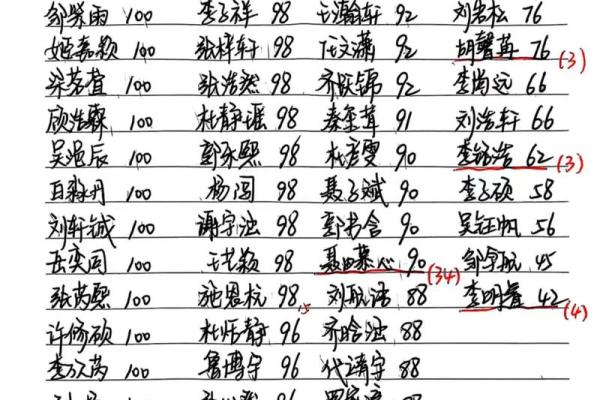 邹紫雨 100 李子祥 98 王瀚轩 92 刘岩松 76
姬嘉颖 100 张梓轩 98 任文潇 92 胡馨苒 76 (3)
梁茗萱 100 张浩然 98 齐跃锦 92 李尚远 66
顾浩霖 100 杜静瑶 98 秦圣茸 91 刘浩轩 66
吴浥辰 100 郭永熙 98 杜彦雯 90 李铭浩 62 (3)
100 杨闯 98 聂子斌 90 李子硕 58
刘轩铖 100 谢宇浩 98 郭书含 90 吴钰帆 56
岳奕同 100 王艺颖 98 聂慕心 90 (34) 邹宇航 45
张芮熙 100 施恩杭 98.5 刘航语 88 42 (4)
许修硕 100 杜恬静 96 齐晗浩 88
李欣芮 100 鲁博宇 96 代靖宇 88